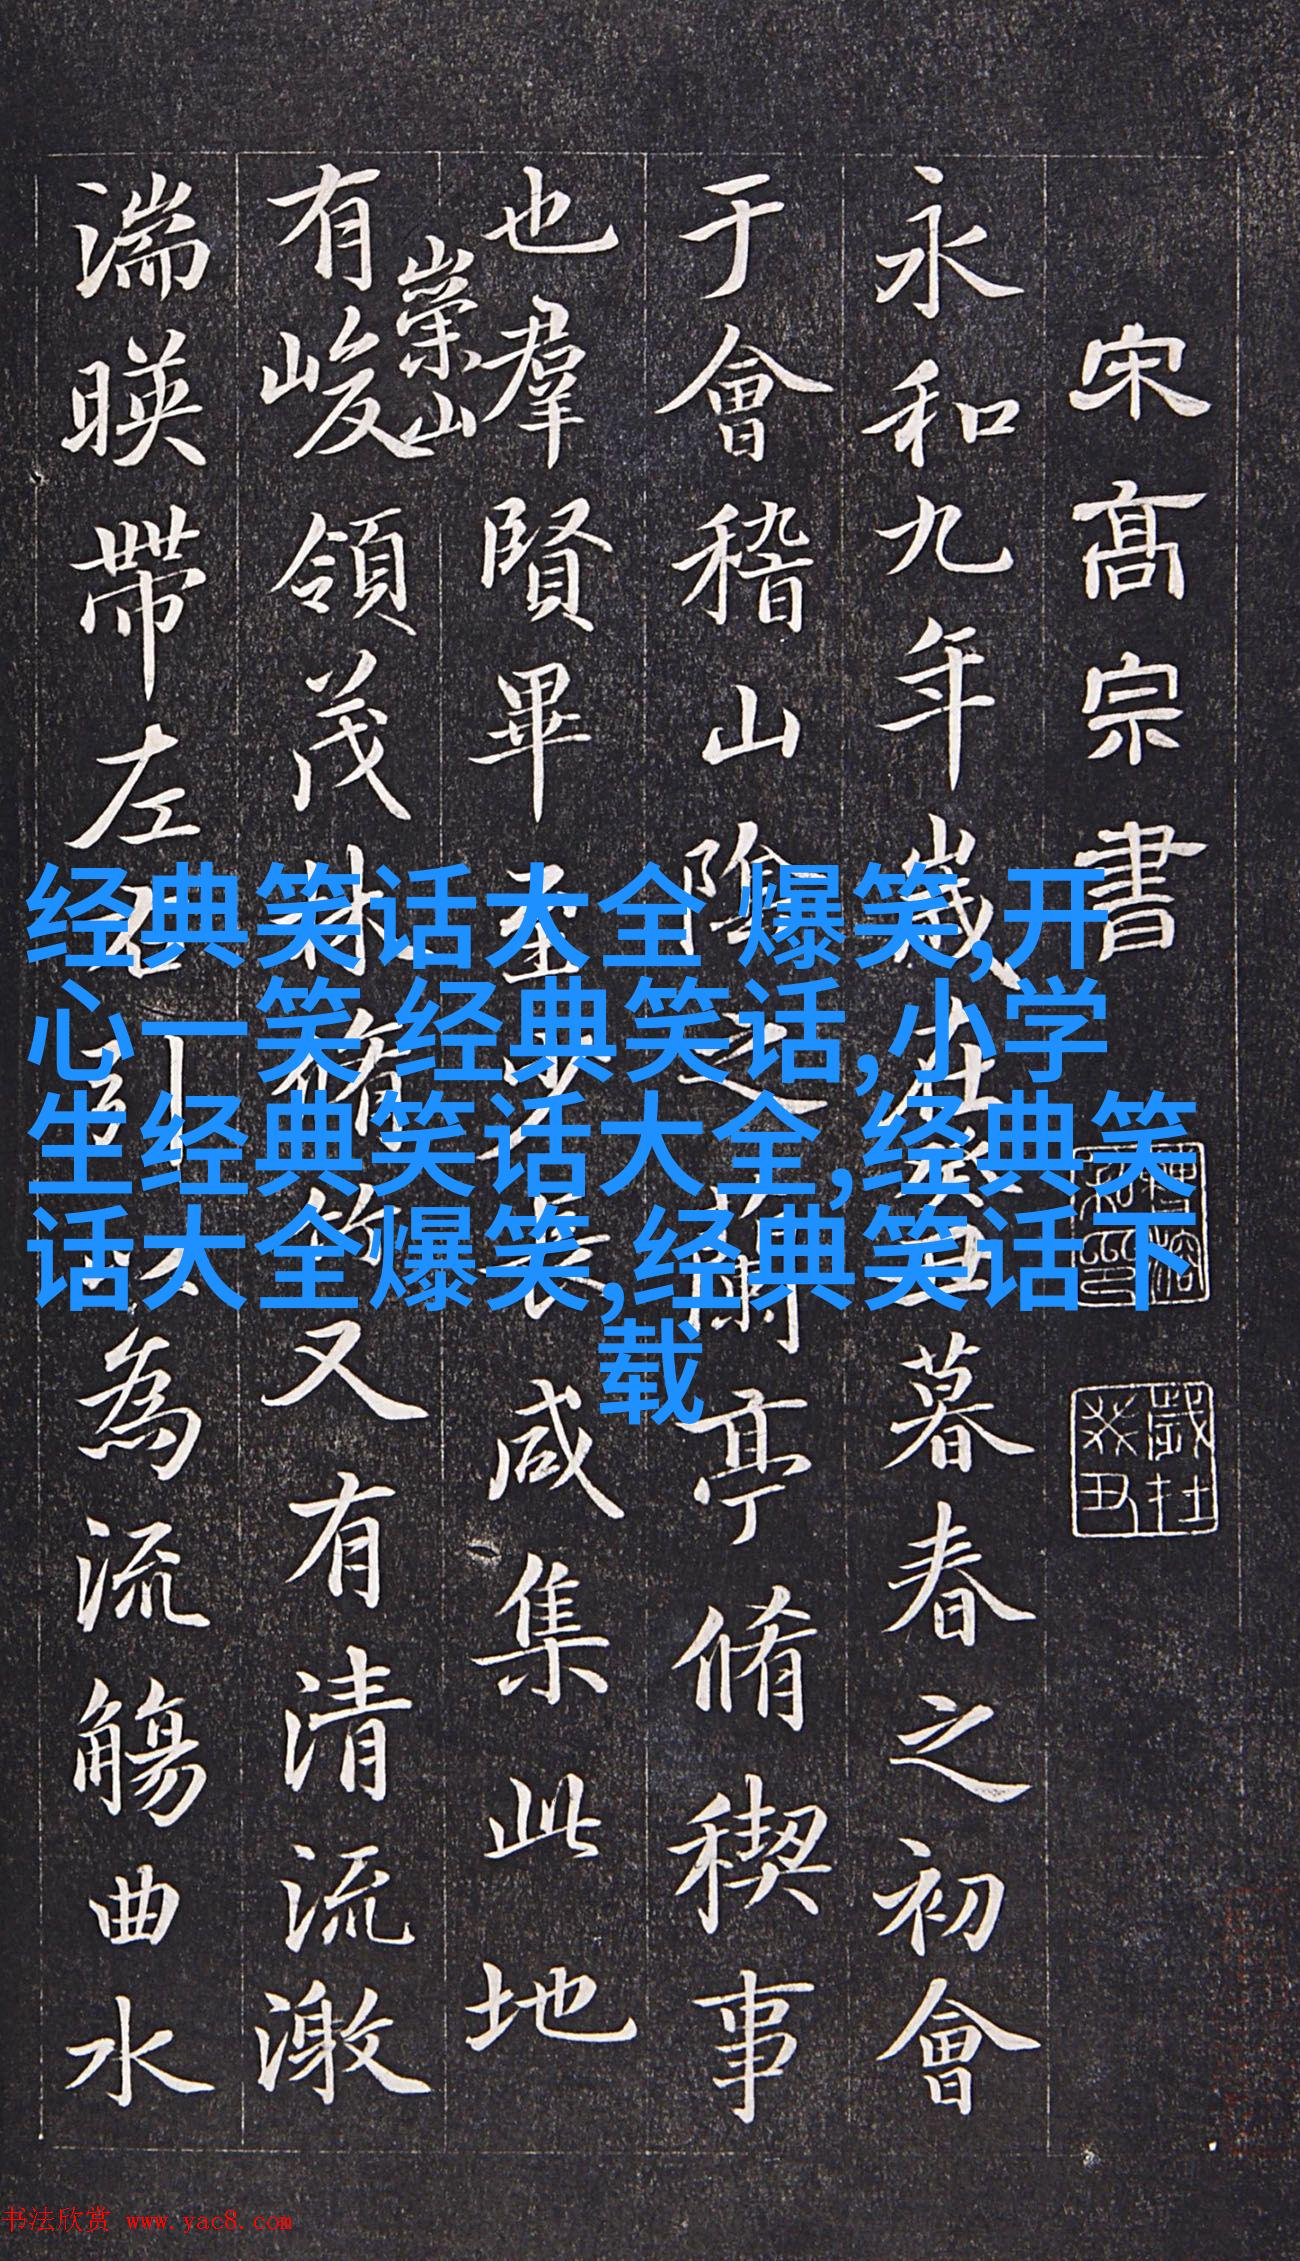 宋高宗書
永和九年歲在癸丑暮春之初會
于會稽山陰之蘭亭脩禊事
也羣賢畢至少長咸集此地
有崇山峻領茂林脩竹又有清流激
湍暎帶左右引以為流觴曲水
歲在癸丑
经典笑话大全 爆笑,开
心一笑 经典笑话,小学
生经典笑话大全,经典笑
话大全爆笑,经典笑话下
载
书法欣赏 www.yac8.com